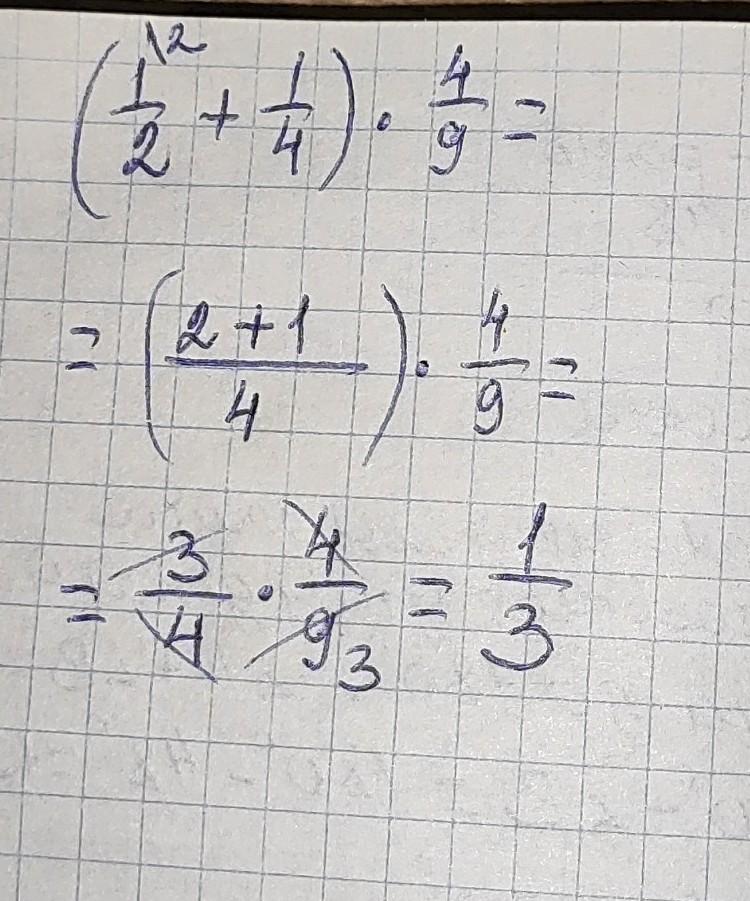 (1/2\2 + 1/4) · 4/9 =
= ((2 + 1)/4) · 4/9 =
= 3/4 · 4/9 3 = 1/3